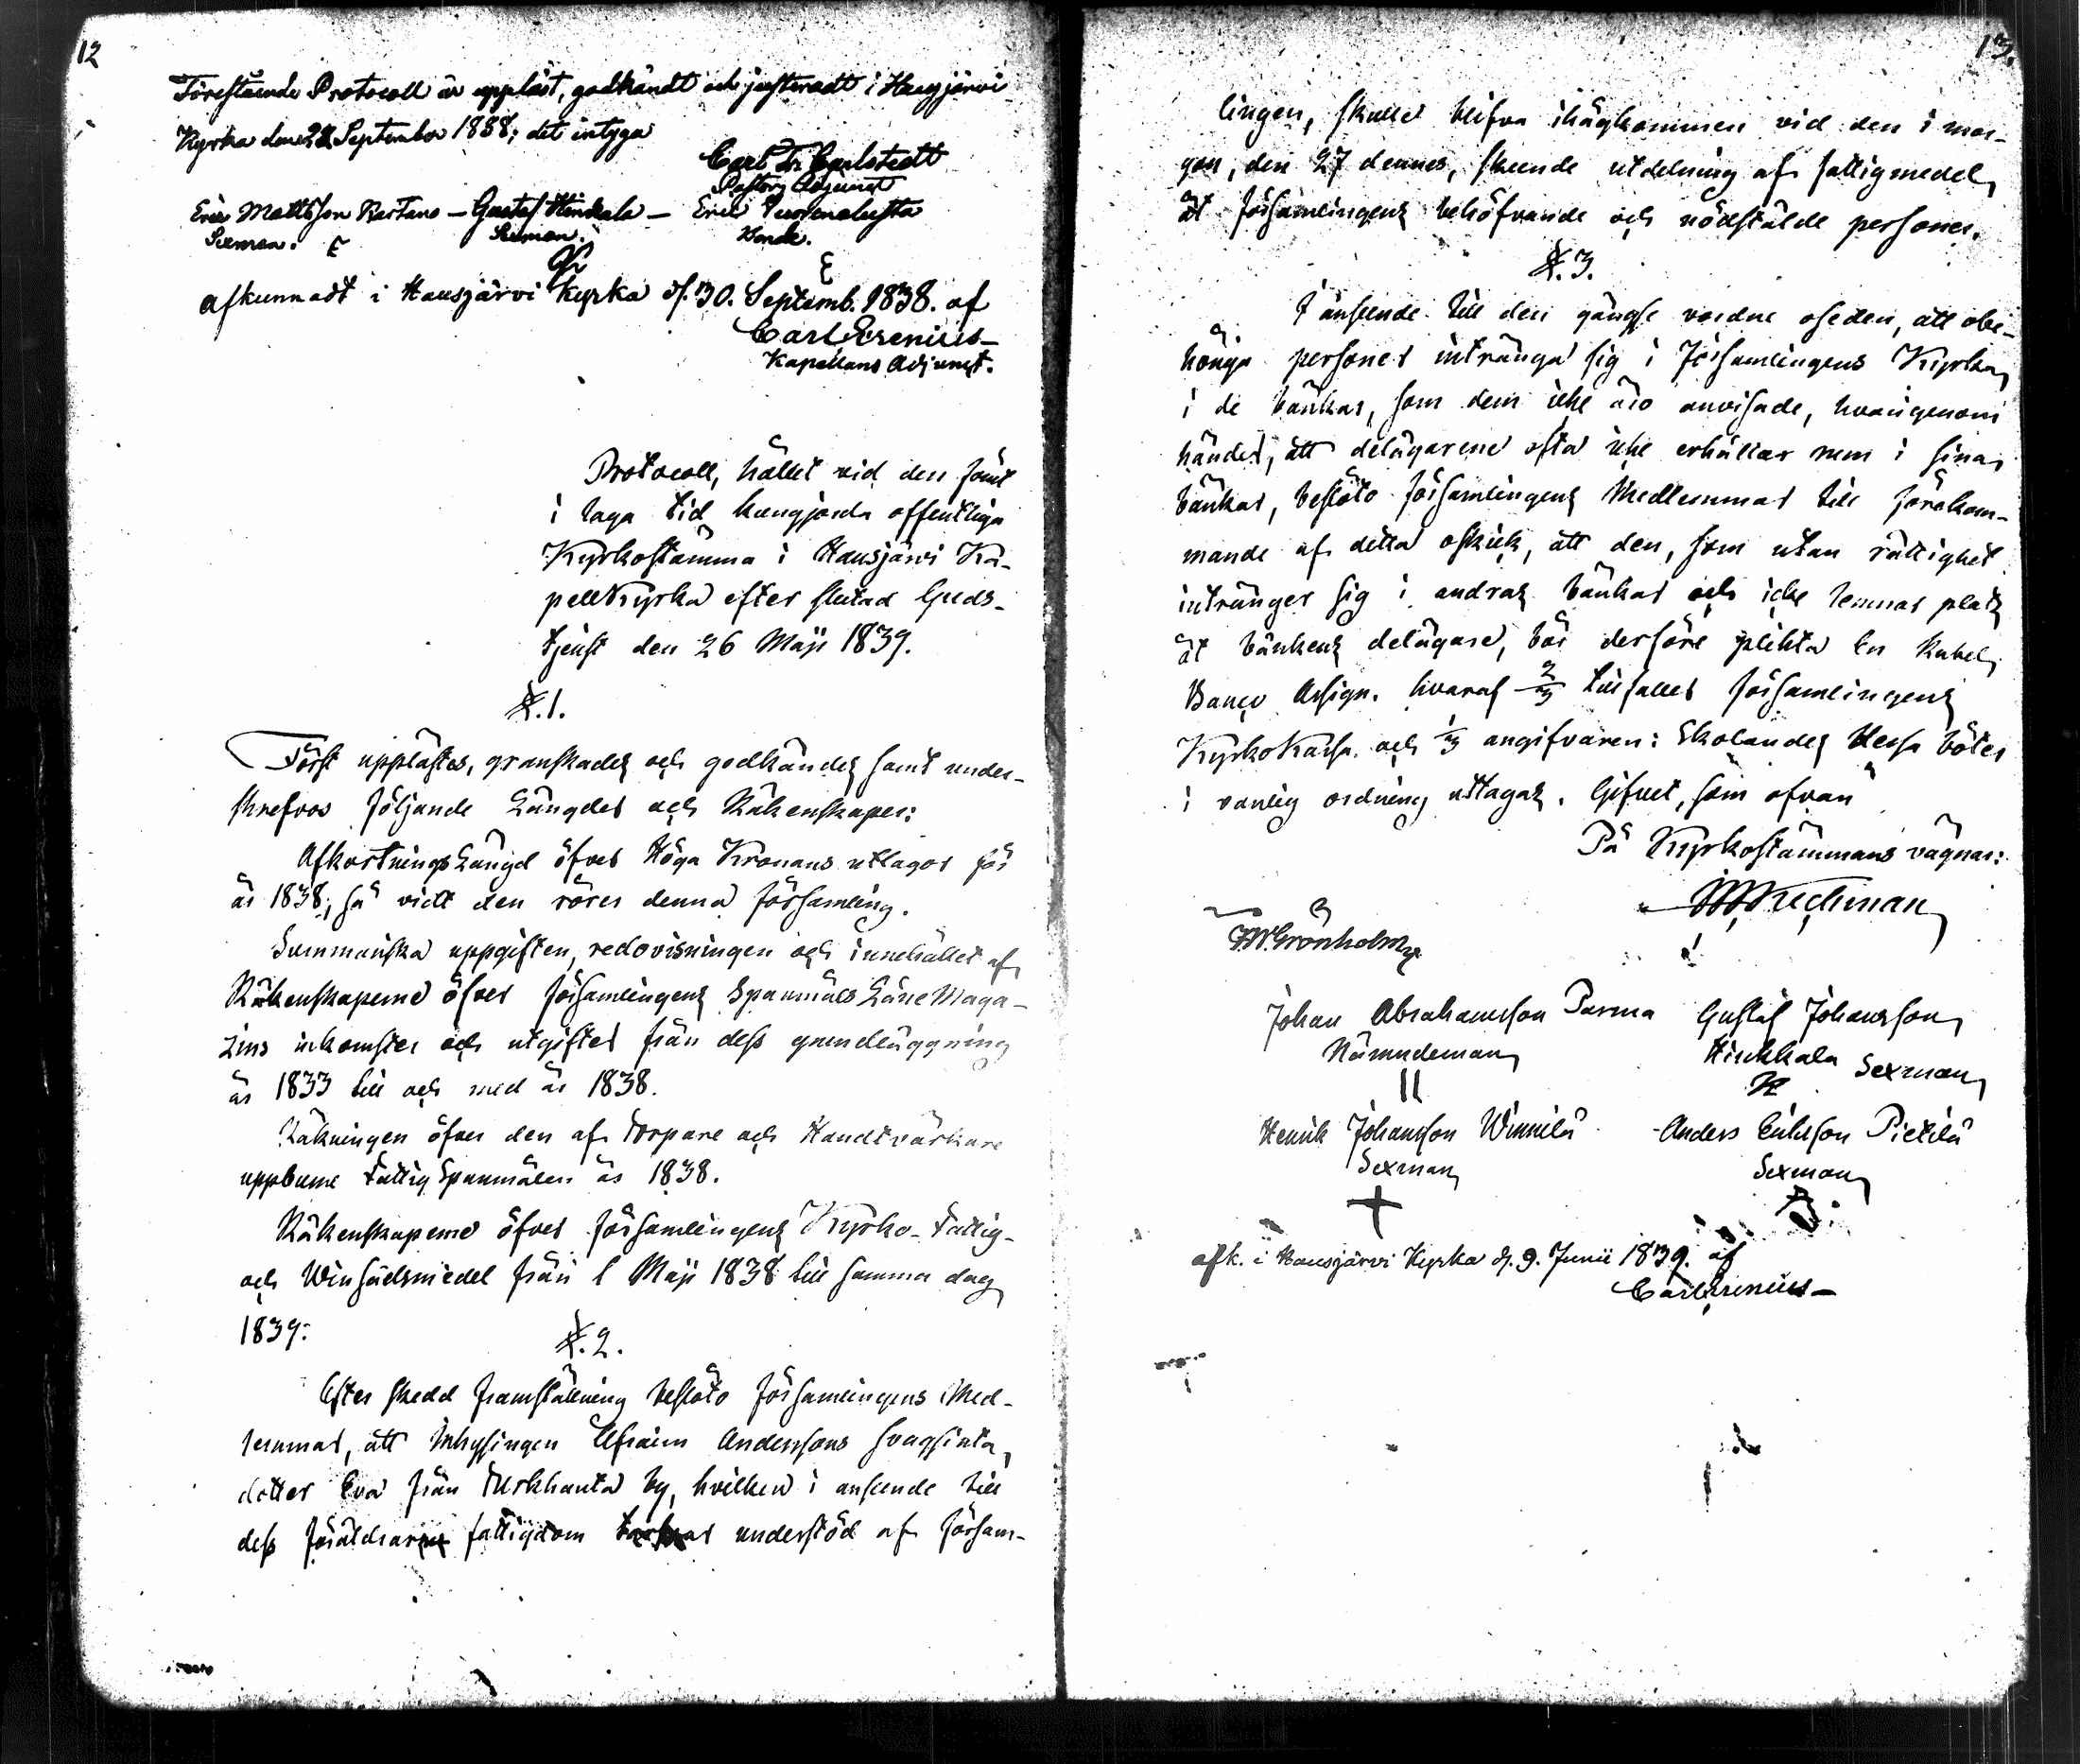 12
Förestående Protocoll är uppläst, godkändt och justeradt i Hausjärvi
Kyrka den 24 September 1838; det intyga
Carl Fr. Carlstedt
Pastors Adjunct
Eric Mattsson Rastans — Gustaf Hirckala — Eric Tuorenalusta
Sexman. Sexman. Bonde.
Afkunnadt i Hausjärvi Kyrka d. 30. Septemb. 1838. af
Carl Grenius
Kapellans Adjunct.
Protocoll, hållet vid den samt
i laga tid kungjorda offentliga
Kyrkostämma i Hausjärvi Ka-
pellKyrka efter slutad Guds-
tjenst den 26 Maji 1839.
§. 1.
Först upplästes, granskades och godkändes samt under-
skrefvos följande Längder och Räkenskaper:
AfkortningsLängd öfver Höga Kronans utlagor för
år 1838, så vidt den rörer denna församling.
Summariska uppgiften, redovisningen och innehållet af
Räkenskaperne öfver församlingens Spanmåls Låne Maga-
zins inkomster och utgifter från dess grundläggning
år 1833 till och med år 1838.
Räkningen öfver den af Torpare och Handtvärkare
uppburne Fattig Spanmålen år 1838.
Räkenskaperne öfver församlingens Kyrko- Fattig-
och Winsädsmedel från 1 Maji 1838 till samma dag
1839:
§. 2.
Efter skedd framställning beslöto församlingens Med-
lemmar, att Inhysingen Efraim Anderssons svagsinta
dotter Eva från Turkhauta by, hvilken i anseende till
dess föräldrars fattigdom understöd af försam-
13.
lingen, skulle blifva ihågkommen vid den i mor-
gon, den 27 dennes, skeende utdelning af fattigmedel
åt församlingens behöfvande och nödstälde personer.
§. 3.
I anseende till den gängse vordne oseden, att obe-
höriga personer intränga sig i församlingens Kyrka
i de bänkar, som dem icke äro anvisade, hvarigenom
händer, att delägarene ofta icke erhåller rum i sina
bänkar, beslöto församlingens Medlemmar till förekom-
mande af detta oskick, att den, som utan rättighet
intränger sig i andras bänkar och icke lemnar plats
åt bänkens delägare, bör derföre plikta En Rubel
Banco Assign. hvaraf 2/3 tillfaller församlingens
KyrkoKassa och 1/3 angifvaren: Skolandes dessa böter
i vanlig ordning uttagas. Gifvet, som ofvan
På Kyrkostämmans vägnar:
F.W. Grönholm
Johan Abrahamsson Parma Gustaf Johansson
Nämndeman Hirckkala Sexman
Henrik Johansson Winnilä Anders Ericsson Pietilä
Sexman Sexman
afk. i Hausjärvi Kyrka d. 9. Junii 1839. af
Carl Grenius